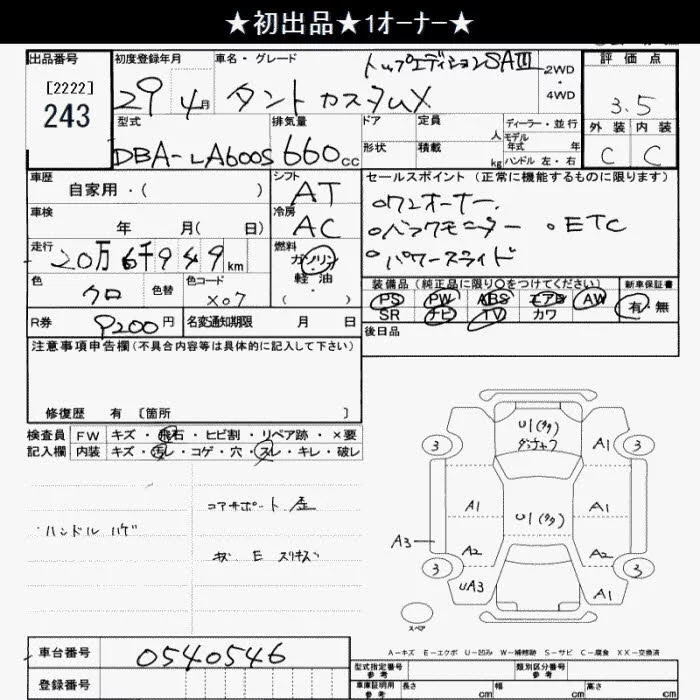 ★初出品★1ｵｰﾅｰ★
出品番号
[2222]
243
初度登録年月
29
4月
車名・グレード
トップエディションSAⅢ
タント カスタムX
2WD
・
4WD
評価点
3.5
外装 内装
C C
型式
DBA-LA600S
排気量
660cc
ドア
形状
定員 人
積載 kg
ディーラー・並行
モデル
年式 年
ハンドル 左・右
車歴
自家用・( )
シフト
AT
車検
年 月( 日)
冷房
AC
走行
20万6千949km
燃料
ガソリン
軽・油
( ・ )
色
クロ
色替
色コード
X07
R券
9200円
名変通知期限 月 日
セールスポイント (正常に機能するものに限ります)
○ワンオーナー.
○バックモニター ○ETC
○パワースライド
装備品(純正品に限り○をつけてください)
PS PW ABS エアB AW
SR ナビ TV カワ
新車保証書
有・無
後日品
注意事項申告欄(不具合内容等は具体的に記入して下さい)
修復歴 有 〔箇所 〕
検査員
記入欄
FW キズ・飛石・ヒビ割・リペア跡・×要
内装 キズ・汚レ・コゲ・穴・スレ・キレ・破レ
コアサポート
ハンドル ハゲ
E スリキズ
U1(タタ)
3
3
A1
A1
A1
U1(タタ)
A3
A2
A2
3
3
UA3
A1
スペア
A－キズ E－エクボ U－凹み W－補修跡 S－サビ C－腐食 XX－交換済
車台番号
0540546
登録番号
型式指定番号
参考
類別区分番号
参考
車庫証明用
参考
長さ cm
幅 cm
高さ cm